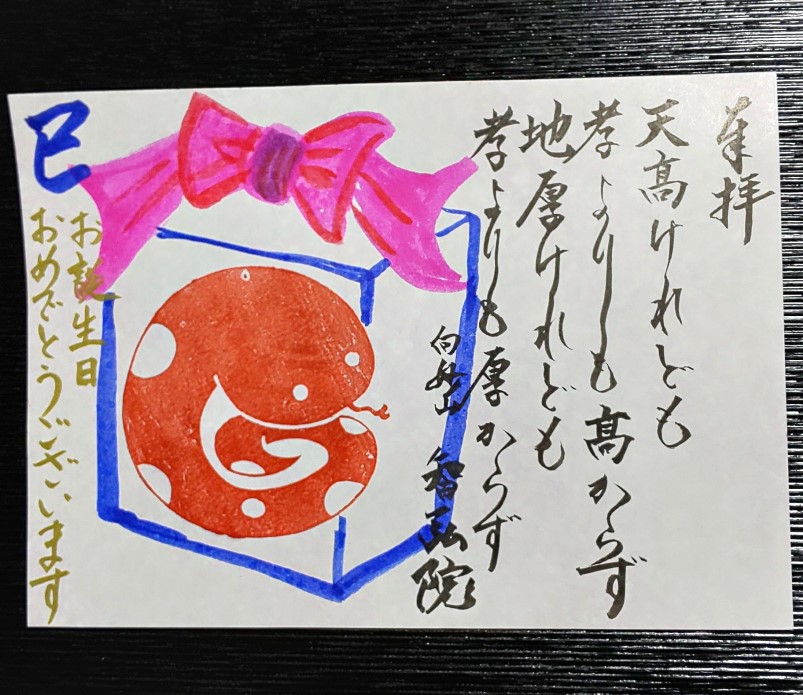 奉拝
天高けれども
孝よりも高からず
地厚けれども
孝よりも厚からず
向妙山 智弘院
お誕生日
おめでとうございます
巳